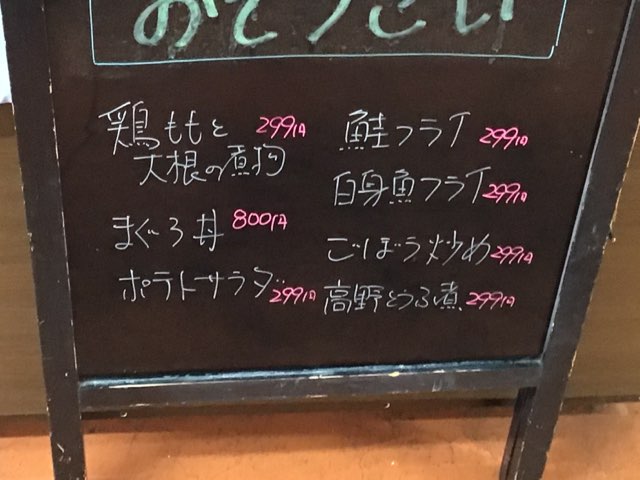 おそうざい
鶏ももと 299円
大根の煮物
まぐろ丼 800円
ポテトサラダ 299円
鮭フライ 299円
白身魚フライ 299円
ごぼう炒め 299円
高野とうふ煮 299円